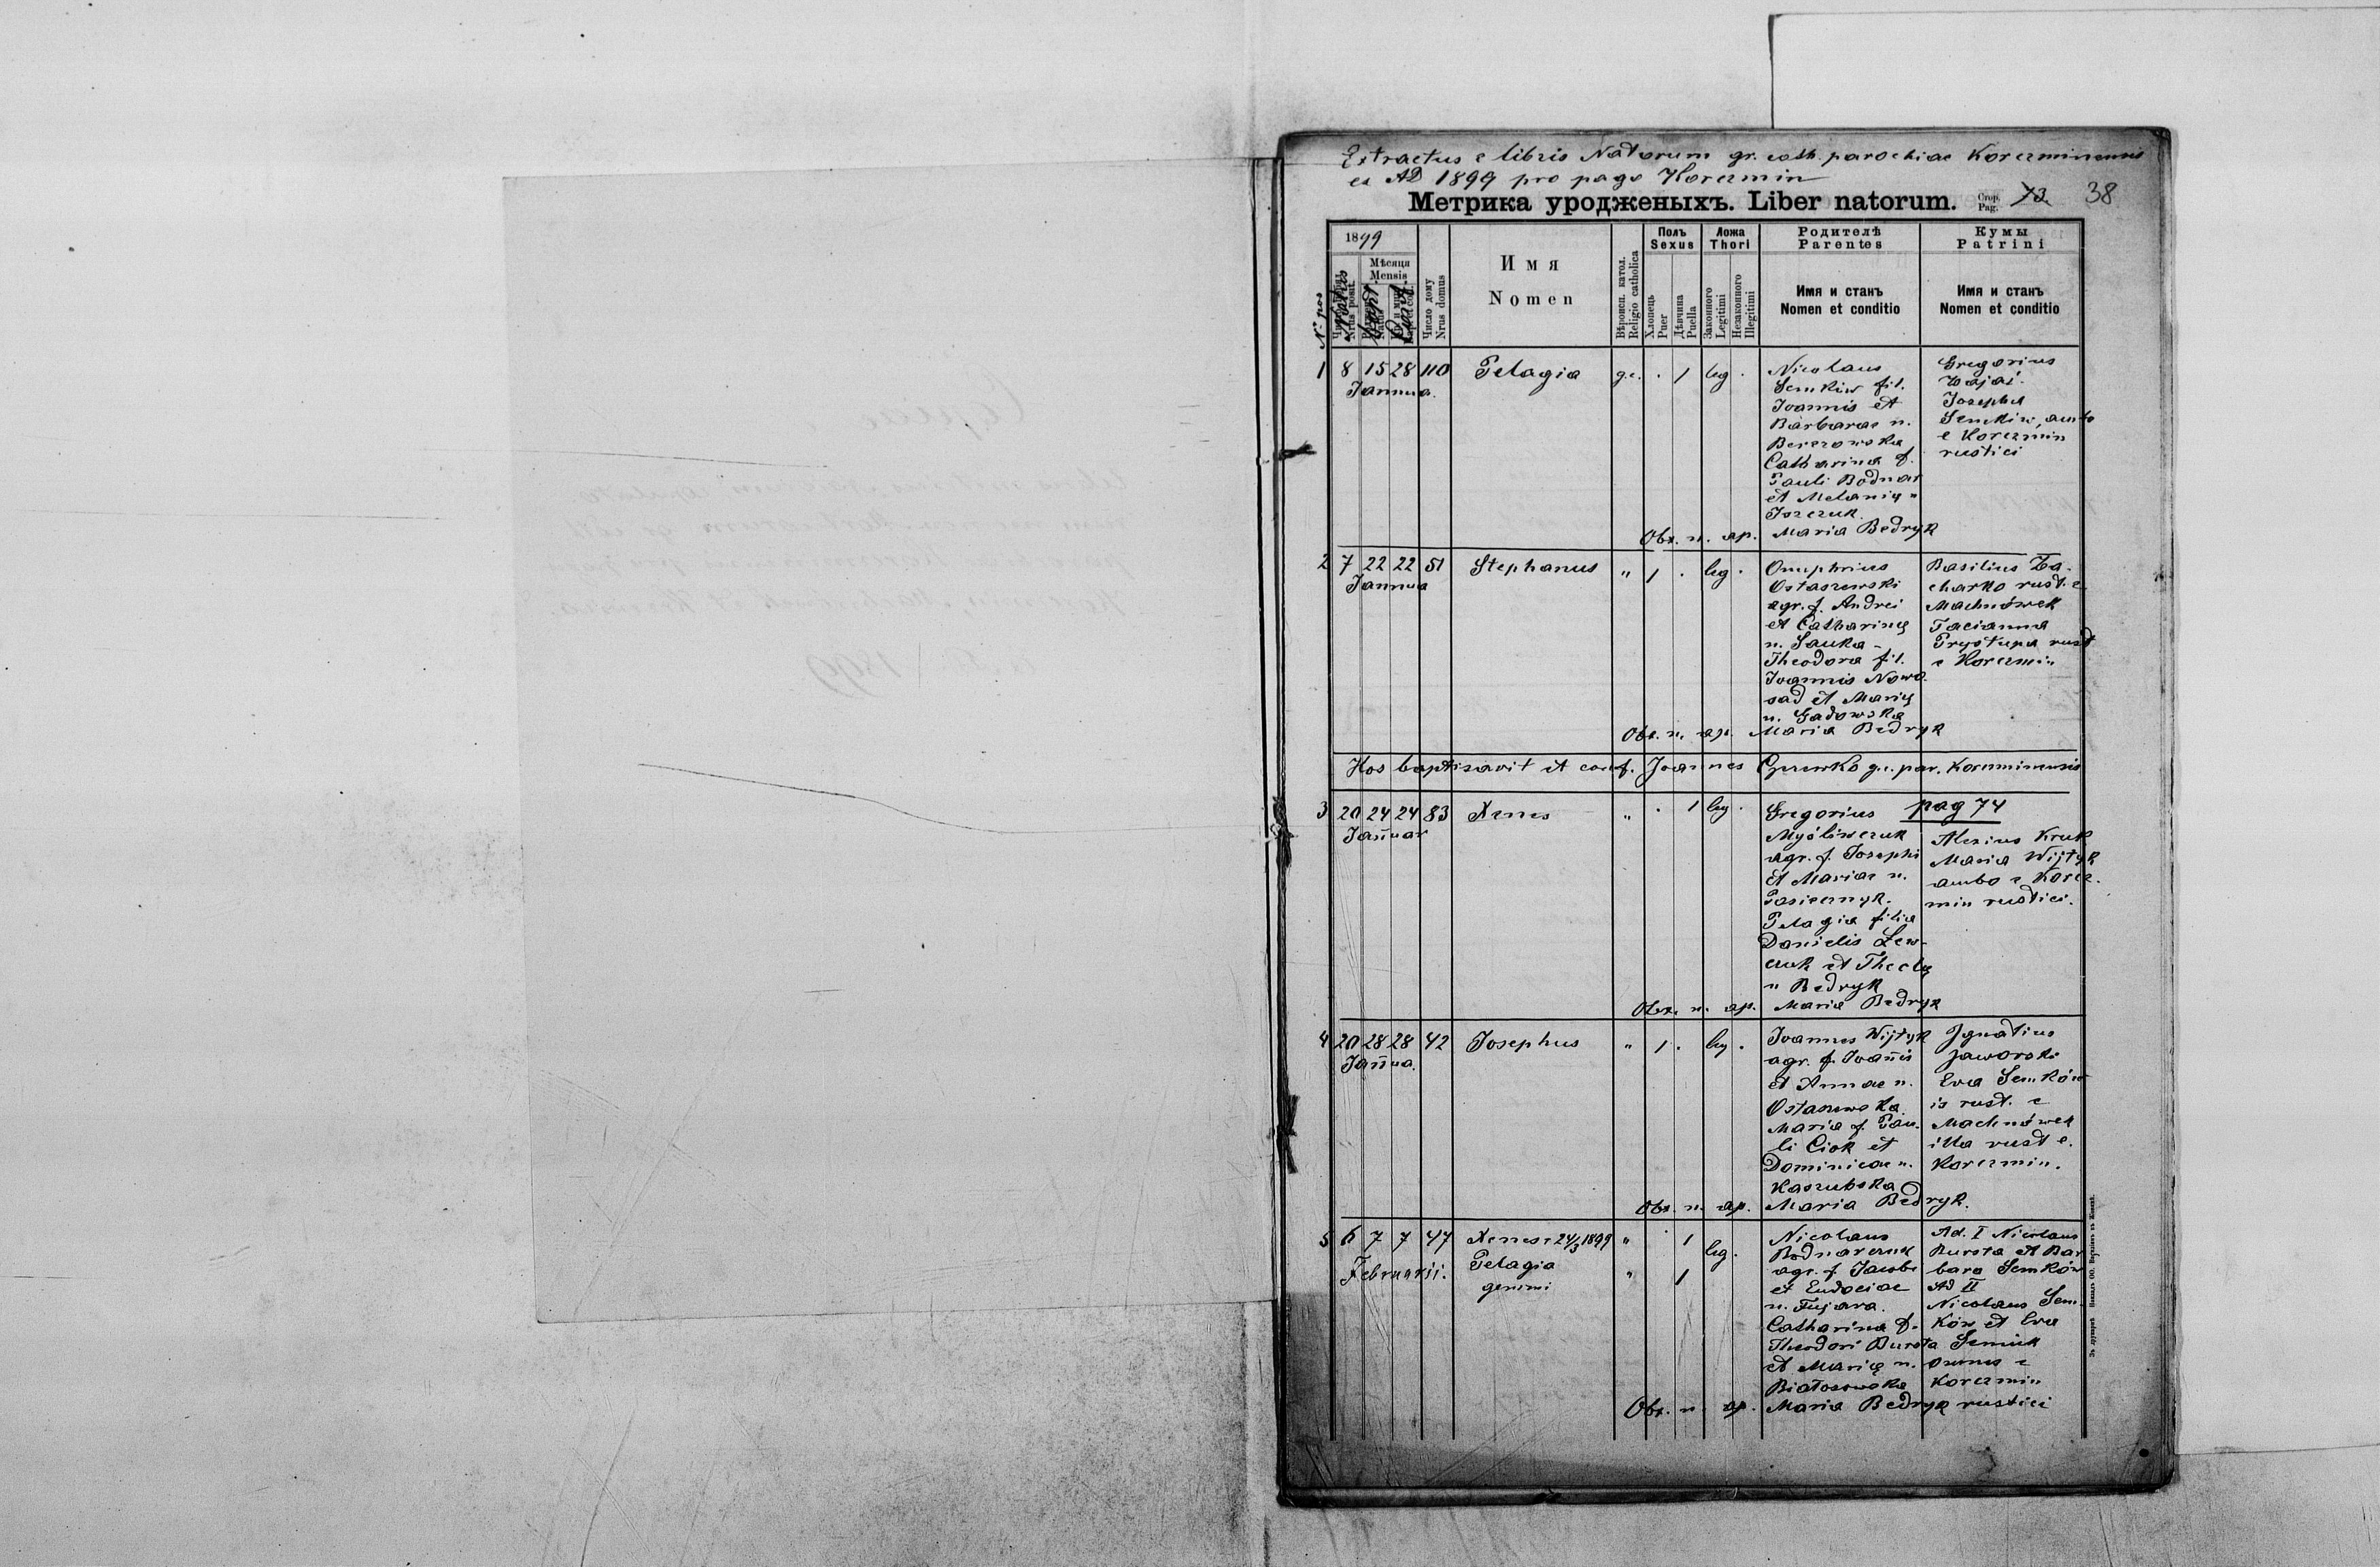 Extractus e libris Natorum gr. cath. parochiae Korczminensis
ex AD 1899 pro pago Korczmin
Метрика уродженыхъ. Liber natorum.
Стор. Pag. 73. 38
1899
Мѣсяця
Mensis
Число дому
Nrus domus
И м я
N o m e n
Вѣроисп. катол.
Religio catholica
Полъ
Sexus
Хлопець
Puer
Дѣвчина
Puella
Ложа
Thori
Законного
Legitimi
Незаконного
Illegitimi
Родителѣ
Parentes
Имя и станъ
Nomen et conditio
Кумы
Patrini
Имя и станъ
Nomen et conditio
N. pos
Natus
Bapt.
1 8 15 28 110 Pelagia g.c. . 1 leg .
Janua.
Nicolaus
Semkiw fil.
Joannis et
Barbarae n.
Berezowska
Catharina f.
Pauli Bodnar
et Melanię n
Jozczuk.
Gregorius
Zajać.
Josepha
Semkiw, ambo
e Korczmin
rustici
Obs. n. ap. Maria Bedryk
2 7 22 22 51 Stephanus " 1 . leg .
Janua
Onuphrius
Ostaszewski
agr. f. Andrei
et Catharinę
n. Sauka -
Theodora fil.
Joannis Nowo
sad et Marię
n. Gadowska
Basilius Za-
charko rust. e
Machnówek
Tacianna
Prystupa rust
e Korczmin
Obs. n. ap. Maria Bedryk
Hos baptisavit et conf. Joannes g.c. par. Korczminensis
3 20 24 24 83 Xenes " . 1 leg .
Januar
Gregorius
Myśliwczuk
agr. f. Josephi
et Mariae n.
Pasicznyk.
Pelagia filia
Danielis Lew-
czuk et Theclę
n Bedryk
pag 74
Alexius Kruk
Maria Wijtyk
ambo e Korcz-
min rustici.
Obs. n. ap. Maria Bedryk
4 20 28 28 42 Josephus " 1 . leg .
Janua.
Joannes Wijtyk
agr. f. Joanis
et Annae n.
Ostaszewska
Maria f. Pau-
li Ciok et
Dominicae n.
Kaszubska
Ignatius
Jaworski
Eva Semków
is rust. e
Machnówek
illa rust e.
Korczmin.
Obs. n. ap. Maria Bedryk.
5 6 7 7 47 Xenes + 24/3 1899 " . 1 leg.
Februarii. Pelagia " 1
gemini
Nicolaus
Bodnarczuk
agr. f. Jacobi
et Eudociae
n. Fujara.
Catharina f.
Theodori Bursta
et Marię n.
Białosowska
Ad. I Nicolaus
Bursta et Bar
bara Semków
Ad II
Nicolaus Sem-
ków et Eva
Semiuk
omnes e
Korczmin
rustici
Obs. n. ap. Maria Bedryk